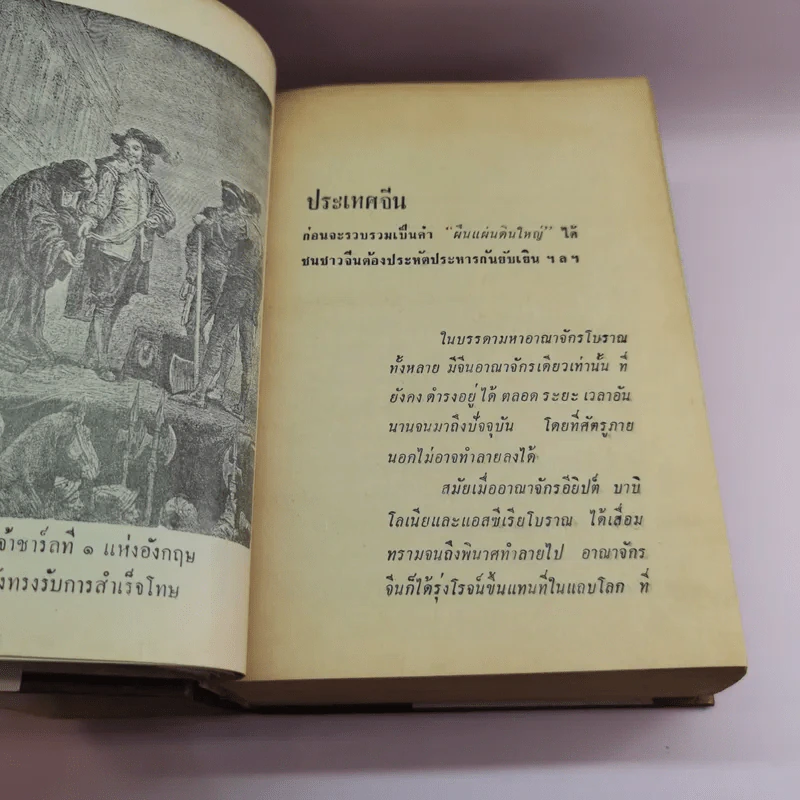 จ้าชาร์ลที่ ๑ แห่งอังกฤษ
งทรงรับการสำเร็จโทษ
ประเทศจีน
ก่อนจะรวบรวมเป็นคำ "ผืนแผ่นดินใหญ่" ได้
ชนชาวจีนต้องประหัตประหารกันยับเยิน ฯ ล ฯ
ในบรรดามหาอาณาจักรโบราณ
ทั้งหลาย มีจีนอาณาจักรเดียวเท่านั้น ที่
ยังคง ดำรงอยู่ ได้ ตลอด ระยะ เวลาอัน
นานจนมาถึงปัจจุบัน โดยที่ศัตรูภาย
นอกไม่อาจทำลายลงได้
สมัยเมื่ออาณาจักรอียิปต์ บาบิ
โลเนียและแอสซีเรียโบราณ ได้เสื่อม
ทรามจนถึงพินาศทำลายไป อาณาจักร
จีนก็ได้รุ่งโรจน์ขึ้นแทนที่ในแถบโลก ที่